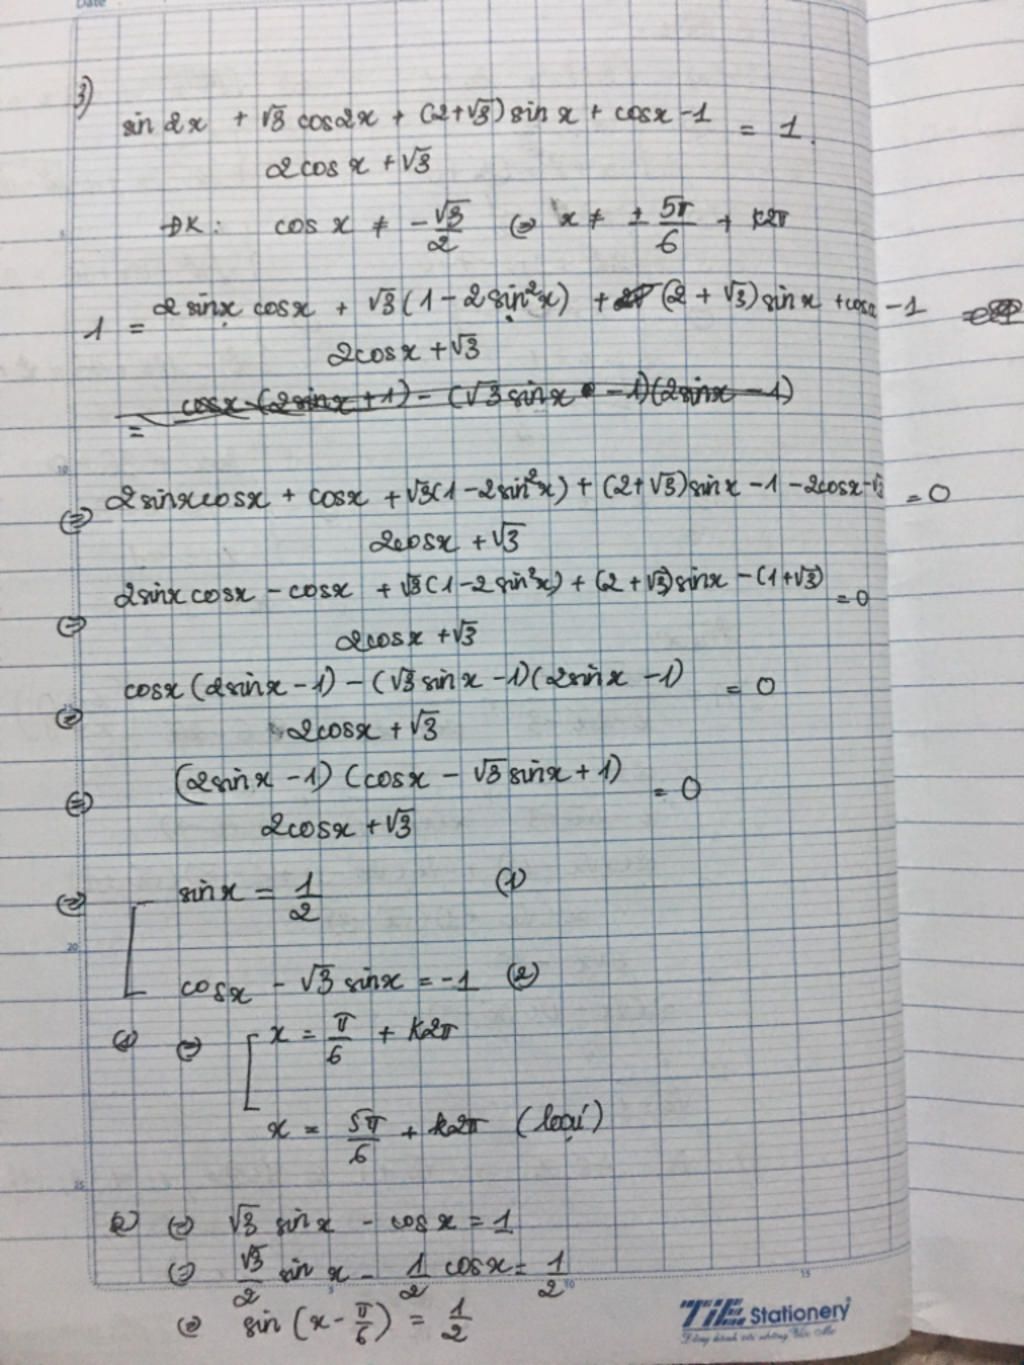 Date
3)
sin 2x + √3 cos2x + (2+√3) sin x + cosx - 1 = 1.
2cos x + √3
ĐK: cos x ≠ -√3/2 ⇔ x ≠ ± 5π/6 + k2π
1 = 2 sinx cosx + √3 (1 - 2 sin²x) + (2 + √3) sinx + cosx - 1
2cosx + √3
= cosx (2sinx + 1) - (√3 sinx - 1)(2sinx - 1)
10
⇔ 2sinxcosx + cosx + √3(1 - 2sin²x) + (2+√3)sinx - 1 - 2cosx - √3 = 0
2cosx + √3
⇔ 2sinx cosx - cosx + √3 (1 - 2 sin²x) + (2 + √3)sinx - (1+√3) = 0
2cosx + √3
⇔ cosx (2sinx - 1) - (√3 sinx - 1)(2sinx - 1) = 0
2cosx + √3
⇔ (2sinx - 1) (cosx - √3 sinx + 1) = 0
2cosx + √3
⇔ [ sinx = 1/2 (1)
20
cosx - √3 sinx = -1 (2)
(1) ⇔ [ x = π/6 + k2π
x = 5π/6 + k2π (loại)
25
(2) ⇔ √3 sinx - cosx = 1
⇔ √3/2 sin x - 1/2 cosx = 1/2
5 10 15
⇔ sin (x - π/6) = 1/2
TiE Stationery